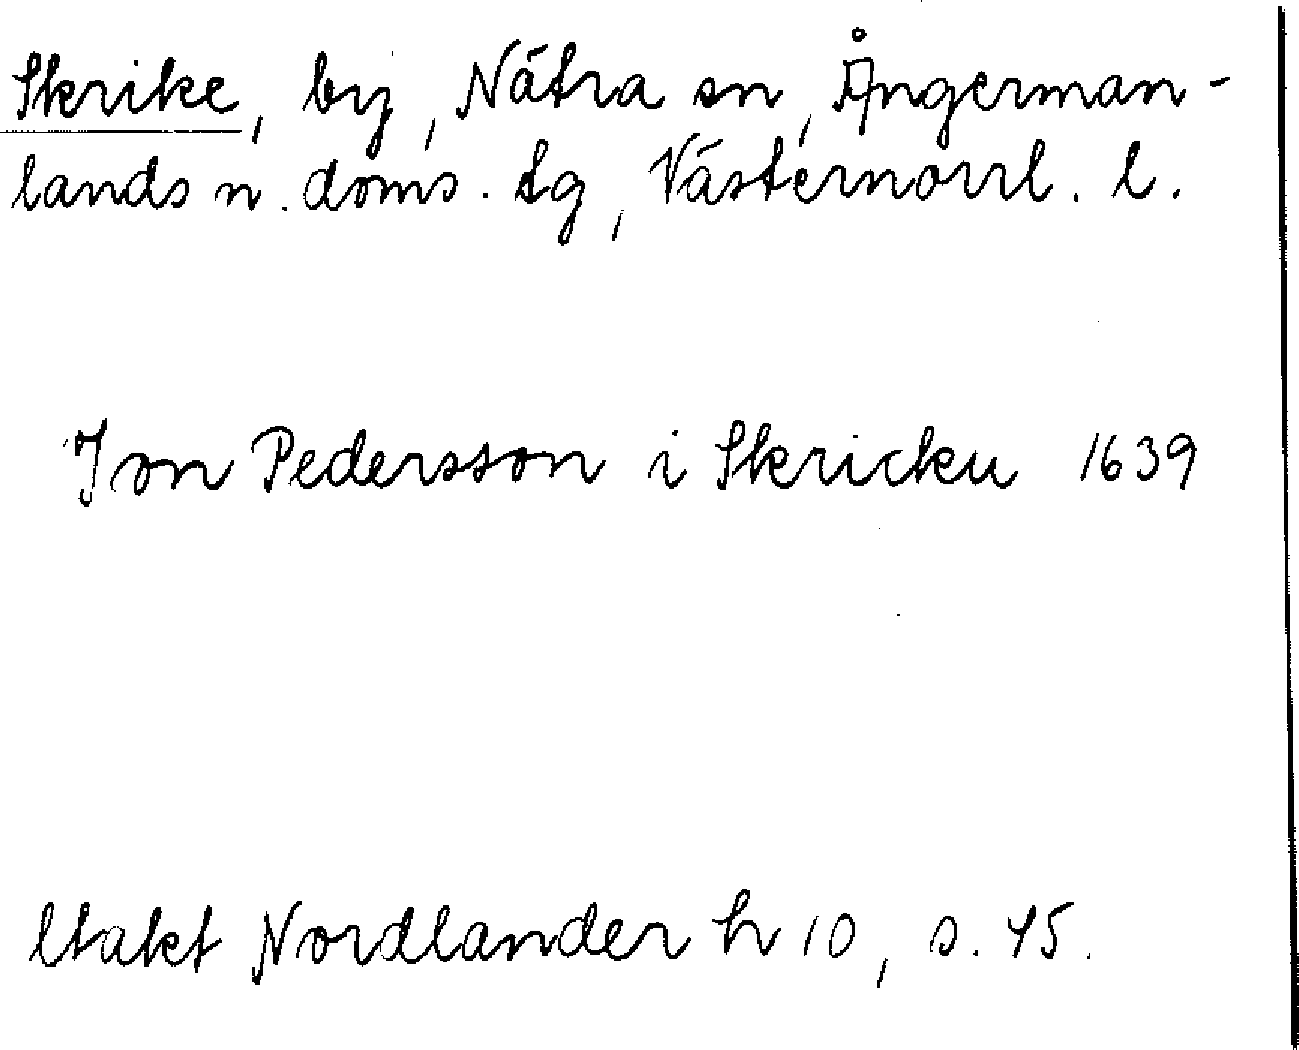 Skrike, by, Nätra sn, Ångerman-
lands n. doms. tg, Västernorrl. l.
Jon Pedersson i Skricku 1639
Utakt Nordlander h 10, s. 45.